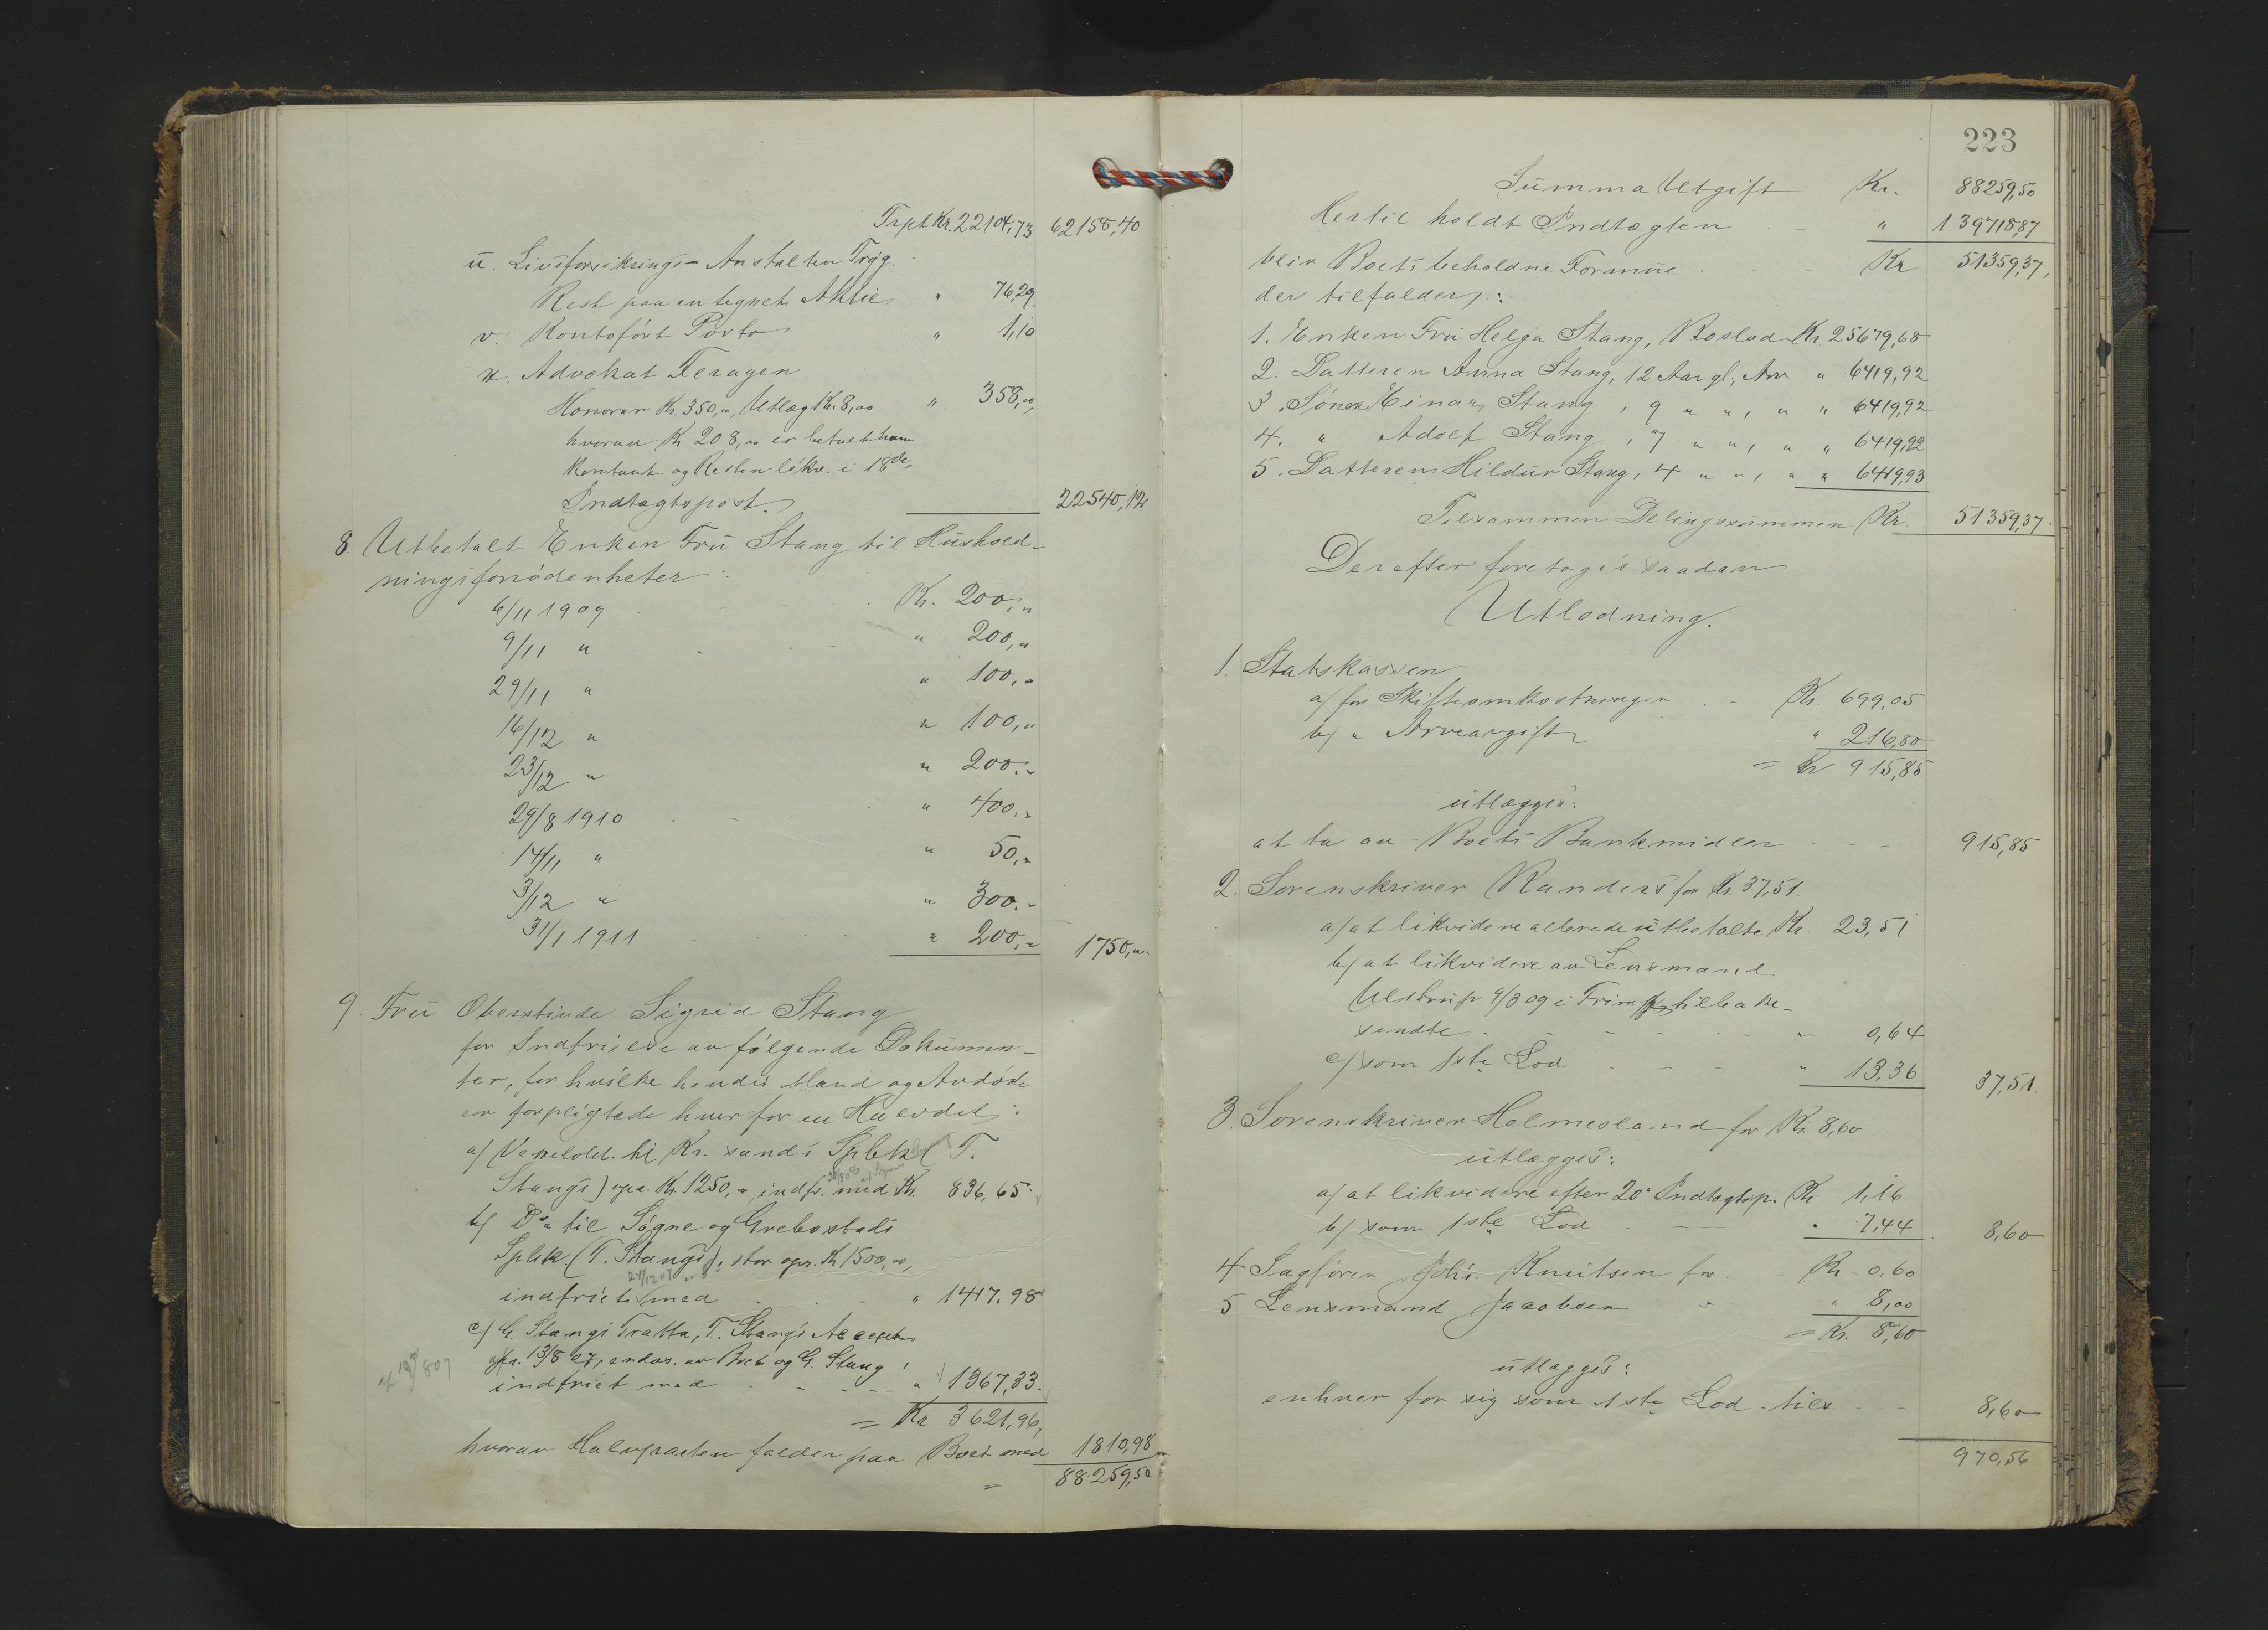 Trpt Kr. 22104,73 62158,40
u. Livsforsikrings-Anstalten Tryg.
Rest paa en tegnet Aktie " 76,29
v. Kontoført Porto " 1,10
x. Advokat Feragen
Honorar Kr. 350,00, Utlæg Kr. 8,00 " 358,00,
hvorav Kr 208,00 er betalt ham
Kontant og Resten likv. i 18de
Indtægtspost. 22540,12
8. Utbetalt Enken Fru Stang til Hushold-
ningsfornødenheter:
6/11 1909 Kr. 200,"
9/11 " " 200,"
29/11 " " 100,"
16/12 " " 100,"
23/12 " " 200,"
29/8 1910 " 400,"
14/11 " " 50,"
3/12 " " 300,"
31/1 1911 " 200," 1750,".
9 Fru Oberstinde Sigrid Stang
for Indfrielse av følgende Dokumen-
ter, for hvilke hendes Mand og Avdøde
er forpligtede hver for en Halvdel:
a/ Vexelobl. til Kr.sands Spbk (T.
Stangs) opr. Kr. 1250,", indfr. med Kr. 836,65
b/ Do til Søgne og Grebostads
Spbk (T. Stangs), stor opr. Kr 1500,00,
indfriet med " 1417,98
c/ G. Stangs Tratta, T. Stangs Accept
pr. 13/8 07, endos. av Boet og G. Stang,
indfriet med " 1367,33.
= Kr 3621,96,
hvorav Halvparten falder paa Boet med 1810,98
= 88259,50
223
Summa Utgift Kr. 88259,50
Hertil holdt Indtægten " 139718,87
blir Boets beholdne Formue Kr 51359,37,
der tilfalder:
1. Enken Fru Helga Stang, Boslod Kr. 25679,68
2. Datteren Anna Stang, 12 Aar gl., Arv " 6419,92
3. Sønnen Einar Stang, 9 " ", " " 6419,92
4. " Adolf Stang, 7 " ", " " 6419,92
5. Datteren Hildur Stang, 4 " ", " " 6419,93
Tilsammen Delingssummen Kr. 51359,37.
Derefter foretoges saadan
Utlodning.
1. Statskassen
a/ for Skifteomkostninger Kr. 699,05
b/ " Arveavgift " 216,80
= Kr 915,85
utlægges:
at ta av Boets Bankmidler 915,85
2. Sorenskriver Randers for Kr. 37,51
a/ at likvidere allerede utbetalte Kr. 23,51
b/ at likvidere av Lensmand
Ulstrup 9/3 09 i Frim. tilbake-
sendte " 0,64
c/ som 1ste Lod " 13,36 37,51
3. Sorenskriver Holmesland for Kr 8,60
utlægges:
a/ at likvidere efter 20. Indtægtsp. Kr 1,16
b/ som 1ste Lod " 7,44 8,60
4 Sagfører Johs. Knutsen for Kr 0,60
5 Lensmand Jacobsen " " 8,00
= Kr. 8,60
utlægges:
enhver for sig som 1ste Lod tils. 8,60
970,56